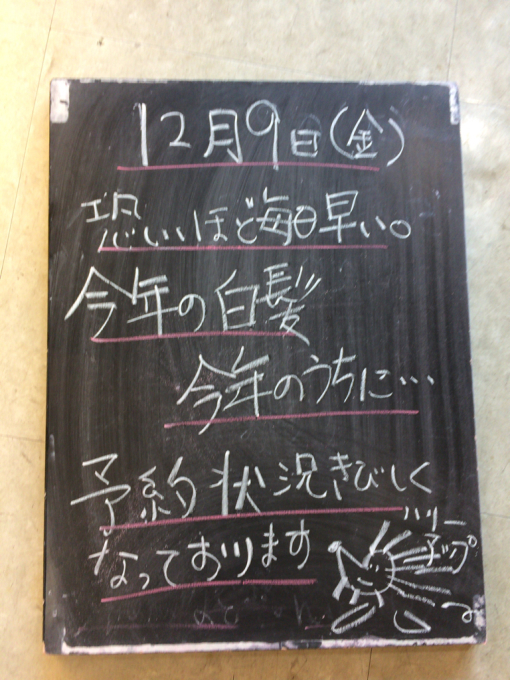 12月9日(金)
恐いほど毎日早い。
今年の白髪
今年のうちに…
予約状況きびしく
なっております
ハリー